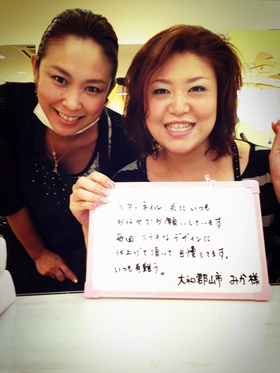 ヘアーネイル 共に いつも
お任せでお願いしています
毎回 ステキなデザインに
仕上げて頂いて、自慢してます。
いつも有難う。
大和郡山市 みか様